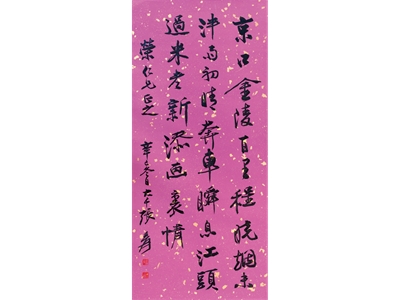 京口金陵百里程煙未
泮雨初晴奔車瞬息江頭
過米老新添画裏情
榮仁兄正之 辛冬日大千張爰